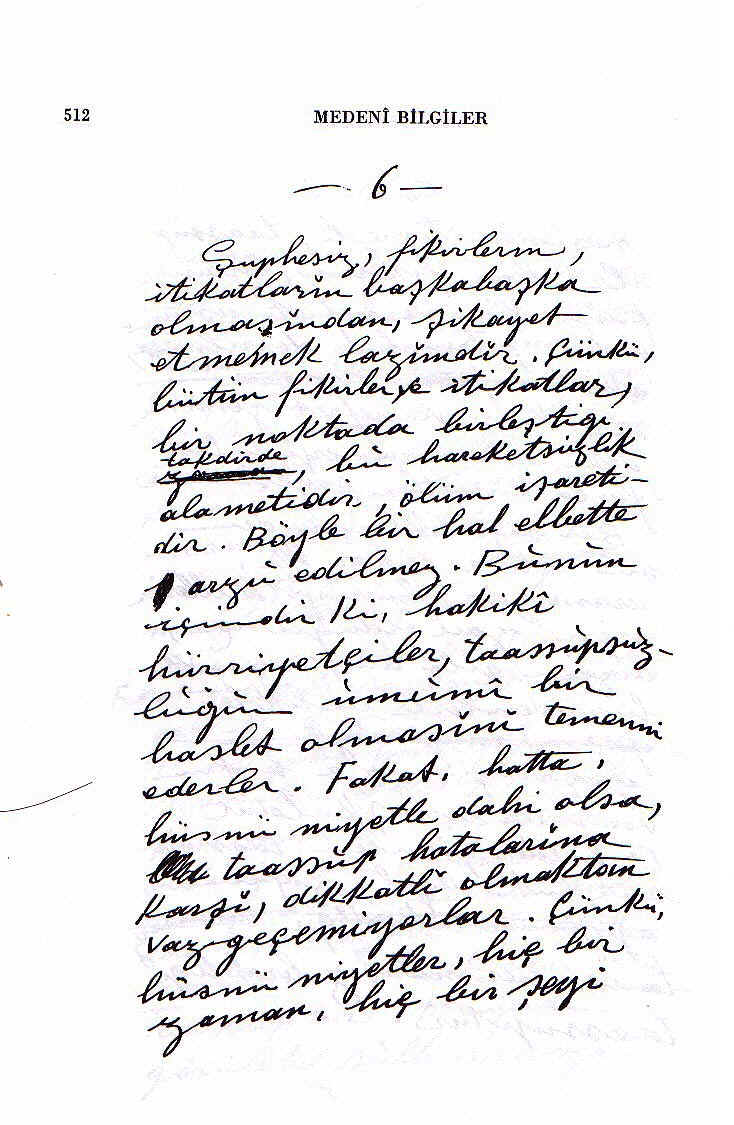 512 MEDENÎ BİLGİLER
— 6 —
Şuphesiz, fikirlerin,
itikatların başkabaşka
olmasından, şikayet
etmemek lazımdır. Çünkü,
bütün fikirler ve itikatlar,
bir noktada birleştiği
takdirde
, bu hareketsizlik
alametidir, ölüm işareti-
dir. Böyle bir hal elbette
arzu edilmez. Bunun
içindir ki, hakikî
hürriyetçiler, taassupsuz-
luğun umumî bir
haslet olmasını temenni
ederler. Fakat, hatta,
hüsnü niyetle dahi olsa,
taassup hatalarına
karşı, dikkatli olmaktan
vazgeçemiyorlar. Çünkü,
hüsnü niyetler, hiç bir
zaman, hiç bir şeyi